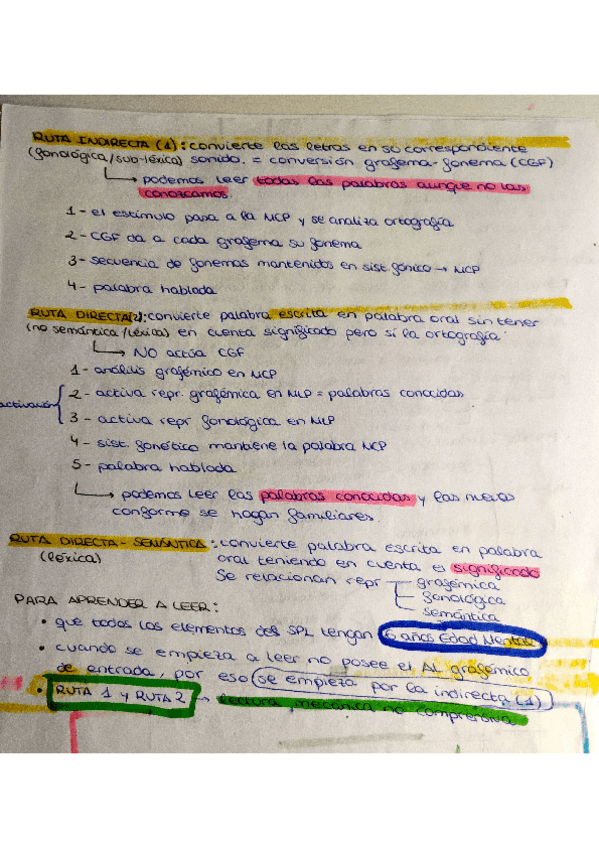 RUTA INDIRECTA (1): convierte las letras en su correspondiente
(fonológica/sub-léxica) sonido. = conversión grafema-fonema (CGF)
podemos leer todas las palabras aunque no las
conozcamos.
1- el estímulo pasa a la MCP y se analiza ortografía
2- CGF da a cada grafema su fonema
3- secuencia de fonemas mantenidos en sist. fónico → MCP
4- palabra hablada
RUTA DIRECTA(2): convierte palabra escrita en palabra oral sin tener
(no semántica/léxica) en cuenta significado pero sí la ortografía.
NO actúa CGF
1- análisis grafémico en MCP
activación
2- activa repr. grafémica en MLP = palabras conocidas
3- activa repr fonológica en MLP
4- sist. fonético mantiene la palabra MCP
5- palabra hablada
podemos leer las palabras conocidas y las nuevas
conforme se hagan familiares.
RUTA DIRECTA-SEMÁNTICA: convierte palabra escrita en palabra
(léxica) oral teniendo en cuenta el significado
Se relacionan repr grafémica
fonológica
semántica
PARA APRENDER A LEER:
• que todos los elementos del SPL tengan 6 años Edad Mental
• cuando se empieza a leer no posee el AL grafémico
de entrada, por eso se empieza por la indirecta (1)
• RUTA 1 y RUTA 2 → lectura mecánica no comprensiva